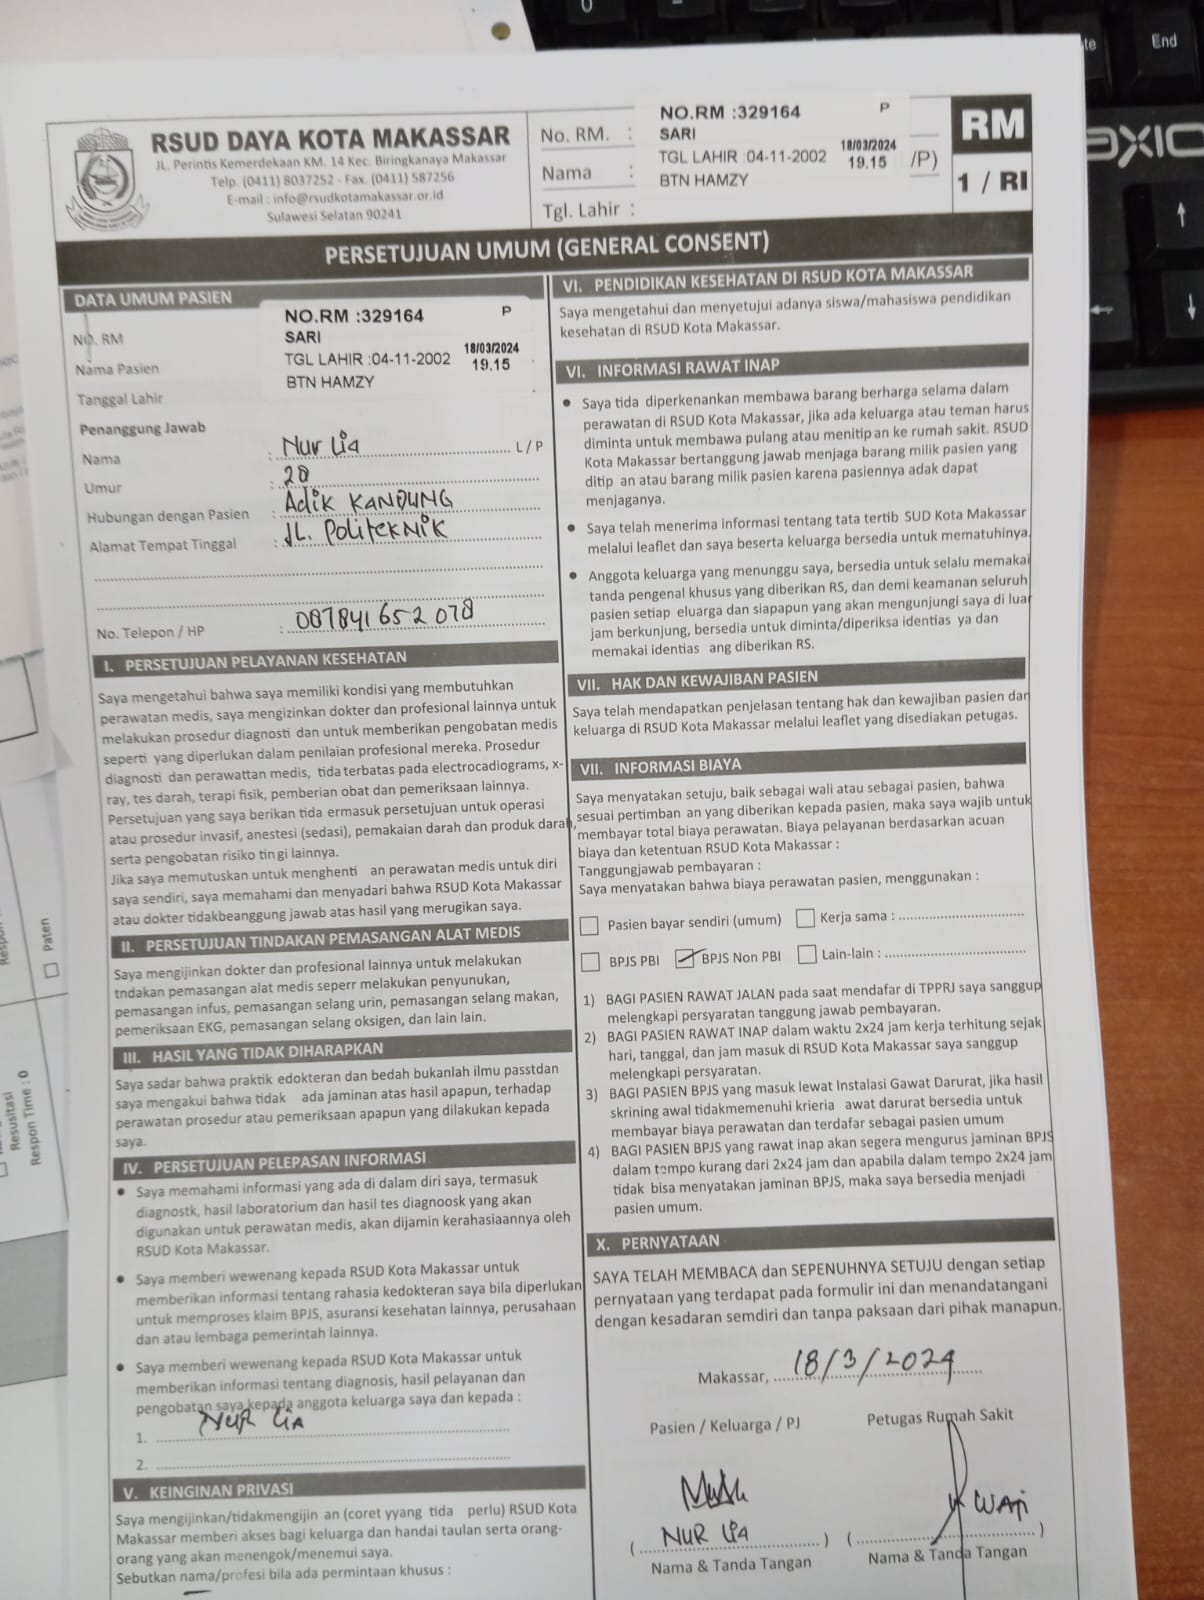 RSUD DAYA KOTA MAKASSAR
JL. Perintis Kemerdekaan KM. 14 Kec. Biringkanaya Makassar
Telp. (0411) 8037252 - Fax. (0411) 587256
E-mail : info@rsudkotamakassar.or.id
Sulawesi Selatan 90241
No. RM. :
Nama :
Tgl. Lahir :
NO.RM :329164 P
SARI
TGL LAHIR :04-11-2002 18/03/2024 19.15
BTN HAMZY
/P)
RM
1 / RI
PERSETUJUAN UMUM (GENERAL CONSENT)
DATA UMUM PASIEN
NO. RM
Nama Pasien
Tanggal Lahir
NO.RM :329164 P
SARI
TGL LAHIR :04-11-2002 18/03/2024 19.15
BTN HAMZY
Penanggung Jawab
Nama : Nur Lia L / P
Umur : 20
Hubungan dengan Pasien : Adik KANDUNG
Alamat Tempat Tinggal : JL. POLITEKNIK
No. Telepon / HP : 087841652078
I. PERSETUJUAN PELAYANAN KESEHATAN
Saya mengetahui bahwa saya memiliki kondisi yang membutuhkan
perawatan medis, saya mengizinkan dokter dan profesional lainnya untuk
melakukan prosedur diagnosti dan untuk memberikan pengobatan medis
seperti yang diperlukan dalam penilaian profesional mereka. Prosedur
diagnosti dan perawattan medis, tida terbatas pada electrocadiograms, x-
ray, tes darah, terapi fisik, pemberian obat dan pemeriksaan lainnya.
Persetujuan yang saya berikan tida ermasuk persetujuan untuk operasi
atau prosedur invasif, anestesi (sedasi), pemakaian darah dan produk darah,
serta pengobatan risiko tin gi lainnya.
Jika saya memutuskan untuk menghenti an perawatan medis untuk diri
saya sendiri, saya memahami dan menyadari bahwa RSUD Kota Makassar
atau dokter tidakbeanggung jawab atas hasil yang merugikan saya.
II. PERSETUJUAN TINDAKAN PEMASANGAN ALAT MEDIS
Saya mengijinkan dokter dan profesional lainnya untuk melakukan
tndakan pemasangan alat medis seperr melakukan penyunukan,
pemasangan infus, pemasangan selang urin, pemasangan selang makan,
pemeriksaan EKG, pemasangan selang oksigen, dan lain lain.
III. HASIL YANG TIDAK DIHARAPKAN
Saya sadar bahwa praktik edokteran dan bedah bukanlah ilmu passtdan
saya mengakui bahwa tidak ada jaminan atas hasil apapun, terhadap
perawatan prosedur atau pemeriksaan apapun yang dilakukan kepada
saya.
IV. PERSETUJUAN PELEPASAN INFORMASI
• Saya memahami informasi yang ada di dalam diri saya, termasuk
diagnostk, hasil laboratorium dan hasil tes diagnoosk yang akan
digunakan untuk perawatan medis, akan dijamin kerahasiaannya oleh
RSUD Kota Makassar.
• Saya memberi wewenang kepada RSUD Kota Makassar untuk
memberikan informasi tentang rahasia kedokteran saya bila diperlukan
untuk memproses klaim BPJS, asuransi kesehatan lainnya, perusahaan
dan atau lembaga pemerintah lainnya.
• Saya memberi wewenang kepada RSUD Kota Makassar untuk
memberikan informasi tentang diagnosis, hasil pelayanan dan
pengobatan saya kepada anggota keluarga saya dan kepada :
1. NUR LIA
2.
V. KEINGINAN PRIVASI
Saya mengijinkan/tidakmengijin an (coret yyang tida perlu) RSUD Kota
Makassar memberi akses bagi keluarga dan handai taulan serta orang-
orang yang akan menengok/menemui saya.
Sebutkan nama/profesi bila ada permintaan khusus :
VI. PENDIDIKAN KESEHATAN DI RSUD KOTA MAKASSAR
Saya mengetahui dan menyetujui adanya siswa/mahasiswa pendidikan
kesehatan di RSUD Kota Makassar.
VI. INFORMASI RAWAT INAP
• Saya tida diperkenankan membawa barang berharga selama dalam
perawatan di RSUD Kota Makassar, jika ada keluarga atau teman harus
diminta untuk membawa pulang atau menitip an ke rumah sakit. RSUD
Kota Makassar bertanggung jawab menjaga barang milik pasien yang
ditip an atau barang milik pasien karena pasiennya adak dapat
menjaganya.
• Saya telah menerima informasi tentang tata tertib SUD Kota Makassar
melalui leaflet dan saya beserta keluarga bersedia untuk mematuhinya.
• Anggota keluarga yang menunggu saya, bersedia untuk selalu memakai
tanda pengenal khusus yang diberikan RS, dan demi keamanan seluruh
pasien setiap eluarga dan siapapun yang akan mengunjungi saya di luar
jam berkunjung, bersedia untuk diminta/diperiksa identias ya dan
memakai identias ang diberikan RS.
VII. HAK DAN KEWAJIBAN PASIEN
Saya telah mendapatkan penjelasan tentang hak dan kewajiban pasien dan
keluarga di RSUD Kota Makassar melalui leaflet yang disediakan petugas.
VII. INFORMASI BIAYA
Saya menyatakan setuju, baik sebagai wali atau sebagai pasien, bahwa
sesuai pertimban an yang diberikan kepada pasien, maka saya wajib untuk
membayar total biaya perawatan. Biaya pelayanan berdasarkan acuan
biaya dan ketentuan RSUD Kota Makassar :
Tanggungjawab pembayaran :
Saya menyatakan bahwa biaya perawatan pasien, menggunakan :
Pasien bayar sendiri (umum) Kerja sama :
BPJS PBI BPJS Non PBI Lain-lain :
1) BAGI PASIEN RAWAT JALAN pada saat mendafar di TPPRJ saya sanggup
melengkapi persyaratan tanggung jawab pembayaran.
2) BAGI PASIEN RAWAT INAP dalam waktu 2x24 jam kerja terhitung sejak
hari, tanggal, dan jam masuk di RSUD Kota Makassar saya sanggup
melengkapi persyaratan.
3) BAGI PASIEN BPJS yang masuk lewat Instalasi Gawat Darurat, jika hasil
skrining awal tidakmemenuhi krieria awat darurat bersedia untuk
membayar biaya perawatan dan terdafar sebagai pasien umum
4) BAGI PASIEN BPJS yang rawat inap akan segera mengurus jaminan BPJS
dalam tempo kurang dari 2x24 jam dan apabila dalam tempo 2x24 jam
tidak bisa menyatakan jaminan BPJS, maka saya bersedia menjadi
pasien umum.
X. PERNYATAAN
SAYA TELAH MEMBACA dan SEPENUHNYA SETUJU dengan setiap
pernyataan yang terdapat pada formulir ini dan menandatangani
dengan kesadaran semdiri dan tanpa paksaan dari pihak manapun.
Makassar, 18/3/2024
Pasien / Keluarga / PJ Petugas Rumah Sakit
( NUR LIA ) ( WATI )
Nama & Tanda Tangan Nama & Tanda Tangan
Paten
Resusitasi
Respon Time : 0
End
AXIO